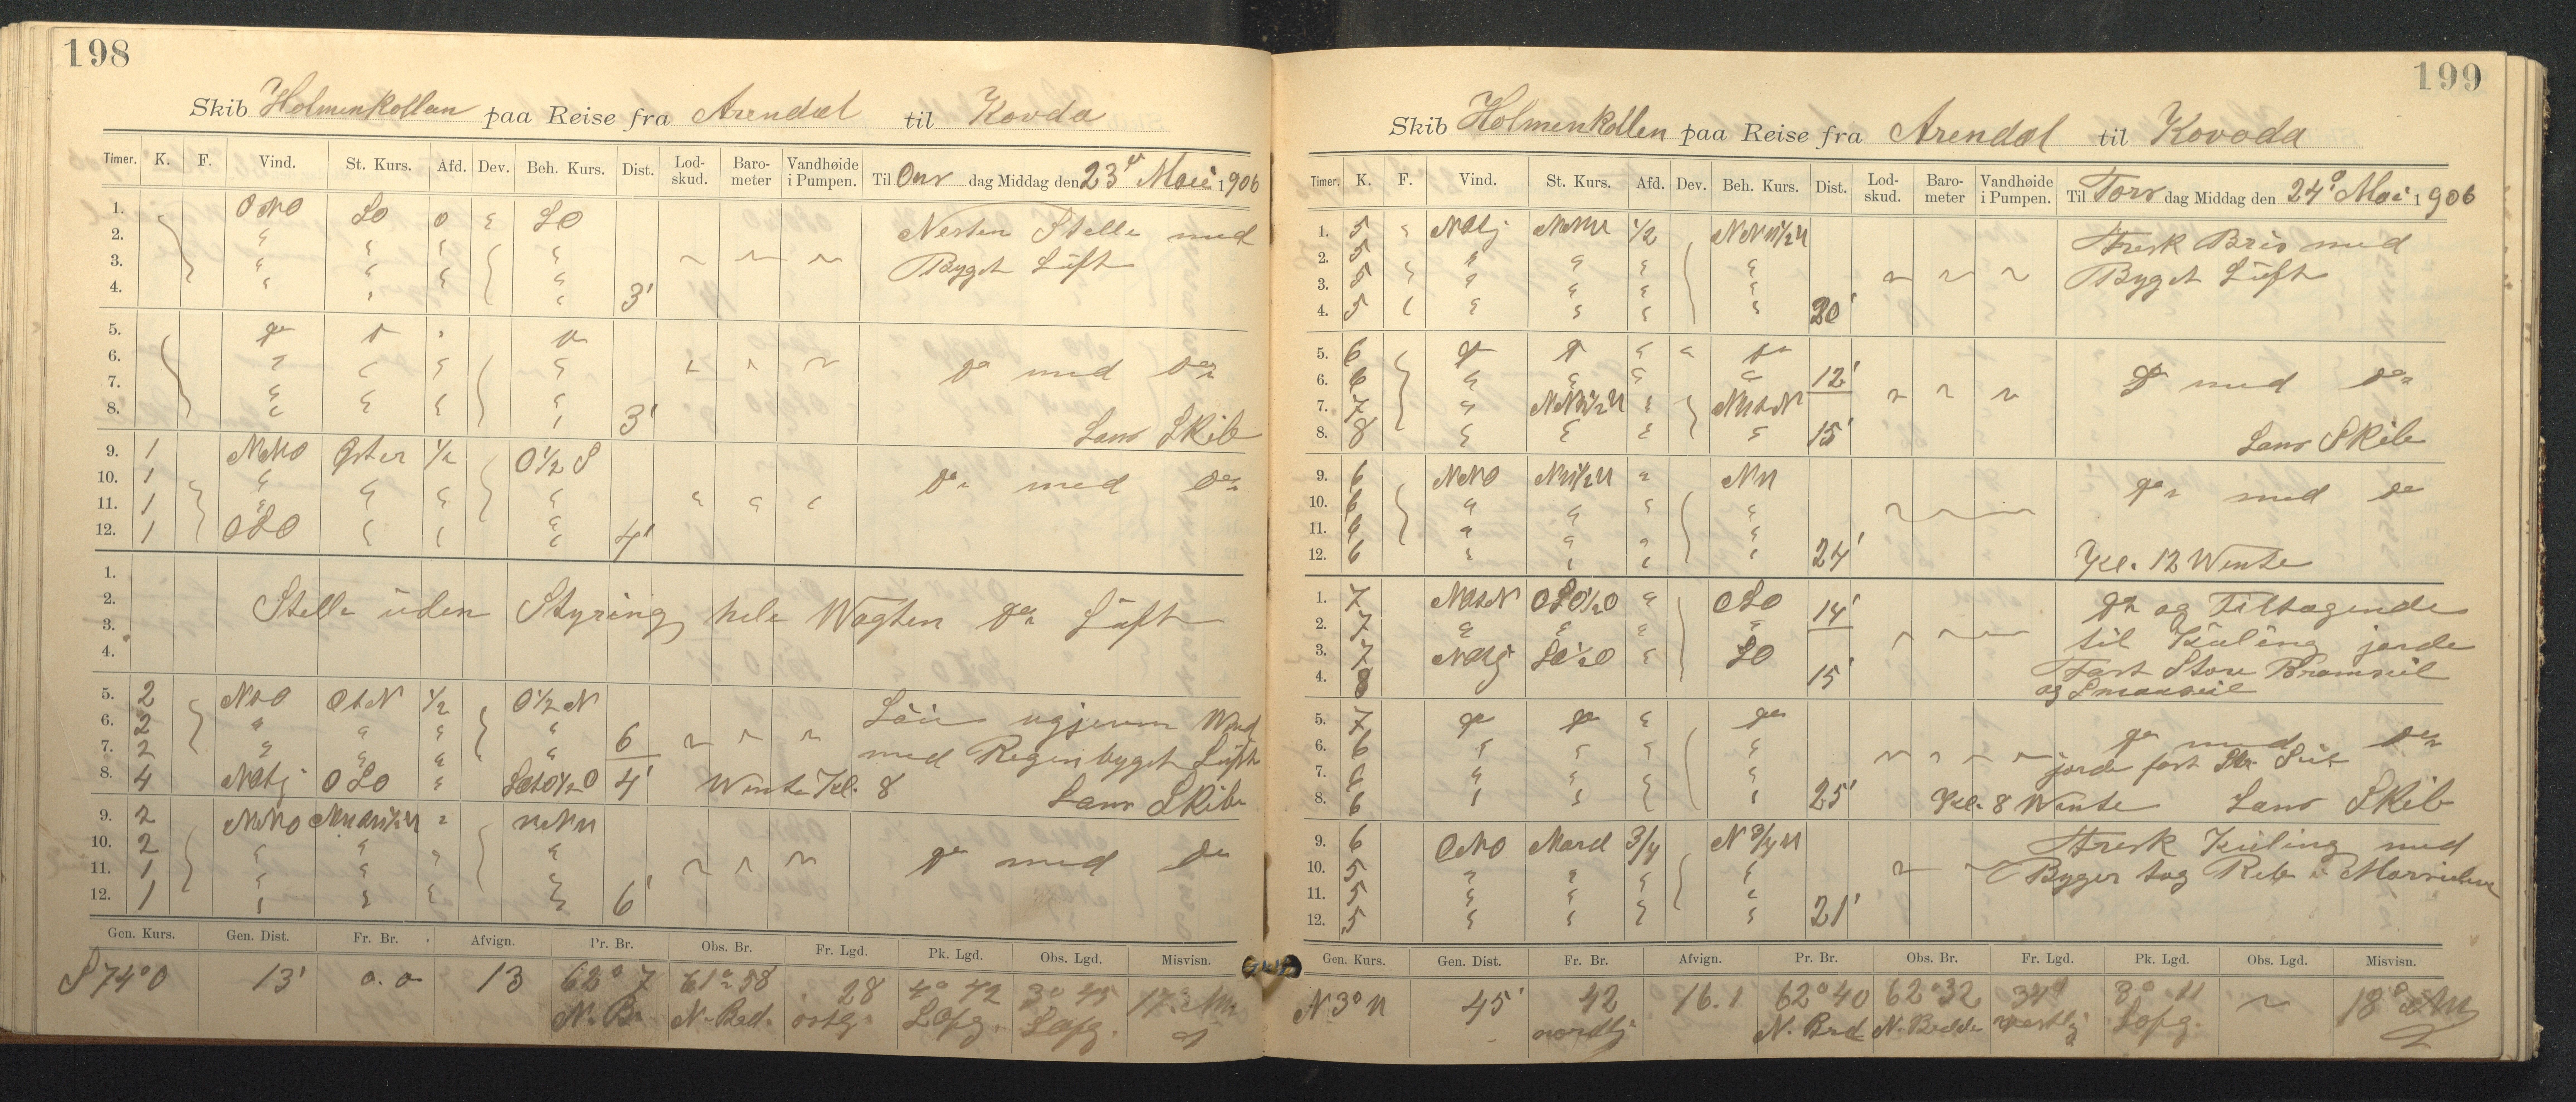 198
Skib Holmenkollen paa Reise fra Arendal til Kovda
Timer. K. F. Vind. St. Kurs. Afd. Dev. Beh. Kurs. Dist. Lod-skud. Baro-meter Vandhøide i Pumpen. Til Ons dag Middag den 23 Mai 1906
1. ONO SO 0 SO
2. Nesten Stelle med
3. Byget Luft
4. 3'
5. do
6. do med do
7.
8. 3'
Lens Skib
9. 1 NNO Øster 1/2 O 1/2 S
10. 1 do med do
11. 1
12. 1 OSO 4'
1.
2. Stelle uden Styring hele Wagten do Luft
3.
4.
5. 2 NtO OtN 1/2 O 1/2 N
6. 2 6 Løi ugjevn Wind
7. 2 med Regenbyget Luft
8. 4 OSO 4' Wente Kl. 8 Lens Skib
9. 2 NNO NNW
10. 2 do med do
11. 1
12. 1 6'
Gen. Kurs. Gen. Dist. Fr. Br. Afvign. Pr. Br. Obs. Br. Fr. Lgd. Pk. Lgd. Obs. Lgd. Misvisn.
S 74° O 13' 0.0 13 62° 7 N. B. 61° 58 N. Bred. 28 østg. 4° 42 Løpg. 3° 45 Løpg. 17°
199
Skib Holmenkollen paa Reise fra Arendal til Kovda
Timer. K. F. Vind. St. Kurs. Afd. Dev. Beh. Kurs. Dist. Lod-skud. Baro-meter Vandhøide i Pumpen. Til Tors dag Middag den 24 Mai 1906
1. 5 1/2
2. 5 Fresk Bris med
3. 5 Byget Luft
4. 5 20'
5. 6 do
6. 6 12' do med do
7. 7
8. 8 15' Lens Skib
9. 6 NNO NW
10. 6 do med do
11. 6
12. 6 24' Kl. 12 Wente
1. 7 OSO 1/2 O OSO 14' do og Tiltagende
2. 7 til Kuling jorde
3. 7 SO Fast Store Bramseil
4. 8 15' og
5. 7 do do do
6. 6 do med do
7. 6 jorde fast
8. 6 25' Kl. 8 Wente Lens Skib
9. 6 ONO Nord 3/4 N 3/4 W Fresk Kuling med
10. 5 Byger tog Reb i
11. 5
12. 5 21'
Gen. Kurs. Gen. Dist. Fr. Br. Afvign. Pr. Br. Obs. Br. Fr. Lgd. Pk. Lgd. Obs. Lgd. Misvisn.
N 3° W 45' 42 nordlig 16.1 62° 40 N. Brd 62° 32 N. Bredde 34' westlig 3° 11 Løpg. 18°